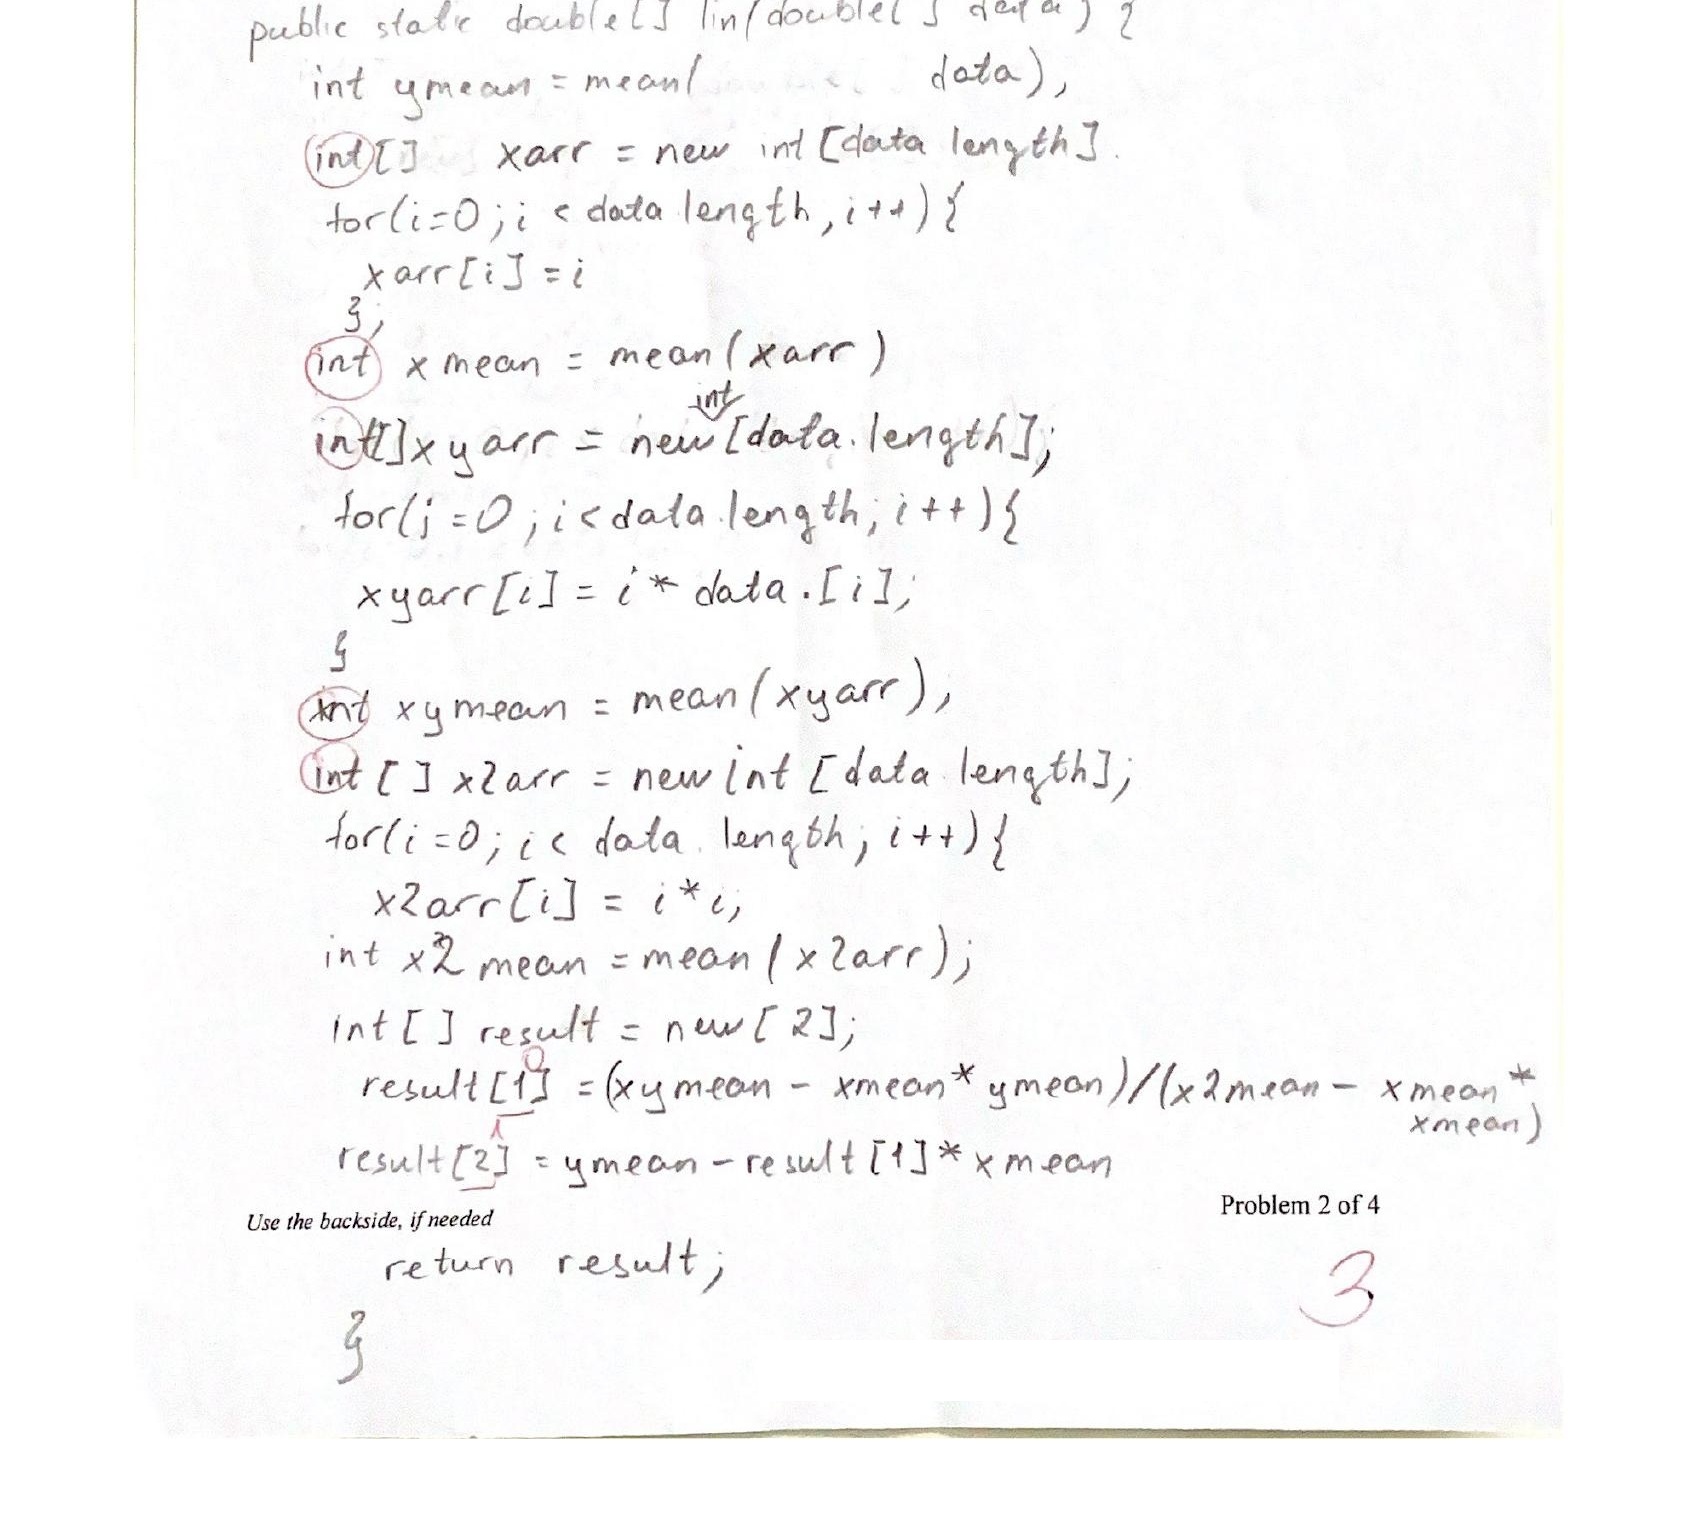 public static double[] lin(double[] data) {
int ymean = mean( data),
int[] xarr = new int [data length].
for(i=0; i < data length, i++) {
xarr[i] = i
};
int xmean = mean(xarr)
int
int[] xyarr = new [data.length];
for(j=0; i<data.length; i++){
xyarr[i] = i * data.[i];
}
int xymean = mean(xyarr),
int [] x2arr = new int [data length];
for(i=0; i< data. length; i++){
x2arr[i] = i*i;
int x2mean = mean(x2arr);
int[] result = new[2];
0
result[1] = (xymean - xmean* ymean)/(x2mean - xmean*
xmean)
1
result[2] = ymean - result[1]* xmean
Problem 2 of 4
Use the backside, if needed
return result;
3
}